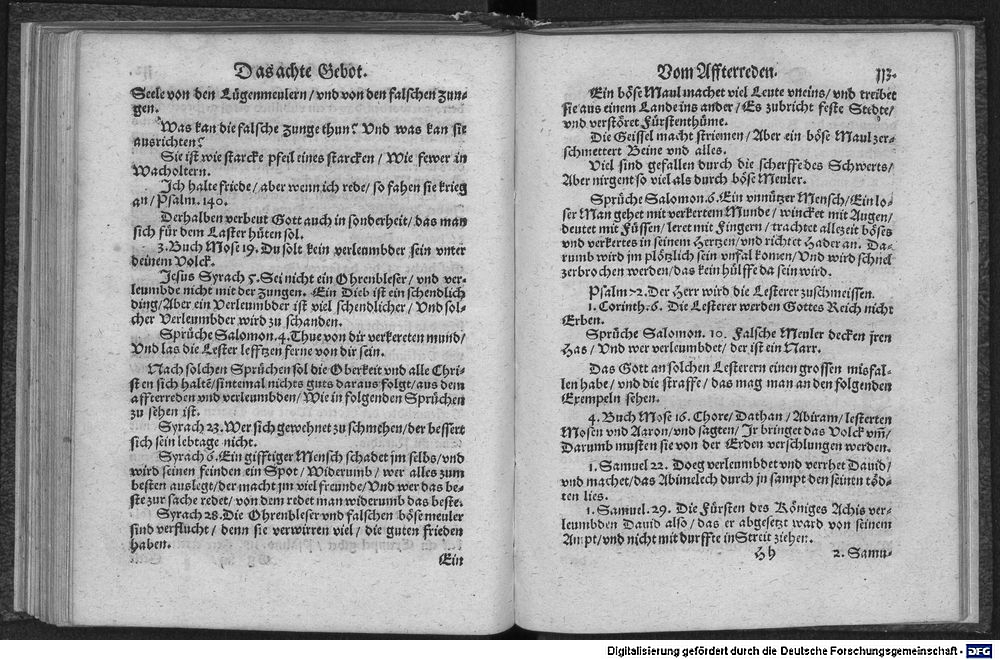 Das achte Gebot.
Seele von den Lügenmeulern / vnd von den falschen zun-
gen.
Was kan die falsche zunge thun? Vnd was kan sie
ausrichten?
Sie ist wie starcke pfeil eines starcken / Wie fewer in
Wacholtern.
Ich halte friede / aber wenn ich rede / so fahen sie krieg
an / Psalm. 140.
Derhalben verbeut Gott auch in sonderheit / das man
sich für dem Laster hüten sol.
3. Buch Mose 19. Du solt kein verleumbder sein vnter
deinem Volck.
Jesus Syrach 5. Sei nicht ein Ohrenbleser / vnd ver-
leumbde nicht mit der Zungen. Ein Dieb ist ein schendlich
ding / Aber ein Verleumbder ist viel schendlicher / Vnd sol-
cher Verleumbder wird zu schanden.
Sprüche Salomon. 4. Thue von dir verkereten mund /
Vnd las die Lester lefftzen ferne von dir sein.
Nach solchen Sprüchen sol die Oberkeit vnd alle Chri-
sten sich haltẽ / sintemal nichts guts daraus folgt / aus dem
affterreden vnd verleumbden / Wie in folgenden Sprüchen
zu sehen ist.
Syrach 23. Wer sich gewehnet zu schmehen / der bessert
sich sein lebtage nicht.
Syrach 6. Ein gifftiger Mensch schadet jm selbs / vnd
wird seinen feinden ein Spot / Widerumb / wer alles zum
besten auslegt / der macht jm viel freunde / Vnd wer das be-
ste zur sache redet / von dem redet man widerumb das beste.
Syrach 28. Die Ohrenbleser vnd falschen böse meuler
sind verflucht / denn sie verwirren viel / die guten frieden
haben.
Ein
Vom Affterreden. 113.
Ein böse Maul machet viel Leute vneins / vnd treibet
sie aus einem Lande ins ander / Es zubricht feste Stedte /
vnd verstöret Fürstenthüme.
Die Geissel macht striemen / Aber ein böse Maul zer-
schmettert Beine vnd alles.
Viel sind gefallen durch die scherffe des Schwerts /
Aber nirgent so viel als durch böse Meuler.
Sprüche Salomon. 6. Ein vnnützer Mensch / Ein lo-
ser Man gehet mit verkertem Munde / wincket mit Augen /
deutet mit Füssen / leret mit Fingern / trachtet allezeit böses
vnd verkertes in seinem Hertzen / vnd richtet Hader an. Da-
rumb wird jm plötzlich sein vnfal komen / Vnd wird schnel
zerbrochen werden / das kein hülffe da sein wird.
Psalm 72. Der Herr wird die Lesterer zuschmeissen.
1. Corinth. 6. Die Lesterer werden Gottes Reich nicht
Erben.
Sprüche Salomon. 10. Falsche Meuler decken jren
Has / Vnd wer verleumbdet / der ist ein Narr.
Das Gott an solchen Lesterern einen grossen misfal-
len habe / vnd die straffe / das mag man an den folgenden
Exempeln sehen.
4. Buch Mose 16. Chore / Dathan / Abiram / lesterten
Mosen vnd Aaron / vnd sagten / Jr bringet das Volck vm̃ /
Darumb musten sie von der Erden verschlungen werden.
1. Samuel 22. Doeg verleumbdet vnd verrhet Dauid /
vnd machet / das Abimelech durch jn sampt den seinen töd-
ten lies.
1. Samuel. 29. Die Fürsten des Königes Achis ver-
leumbden Dauid also / das er abgesetzt ward von seinem
Ampt / vnd nicht mit durffte in Streit ziehen.
Hh 2. Samu-
Digitalisierung gefördert durch die Deutsche Forschungsgemeinschaft - DFG